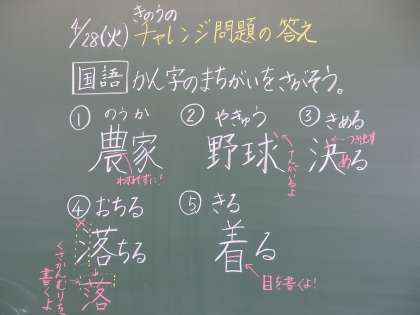 4/28(火) きのうの チャレンジ問題の答え
国語 かん字のまちがいをさがそう。
① のうか
農家
わすれずに!
② やきゅう
野球
てんがあるよ
③ きめる
決める
つき出す
④ おちる
落ちる
落
くさかんむりを書くよ
⑤ きる
着る
目を書くよ!